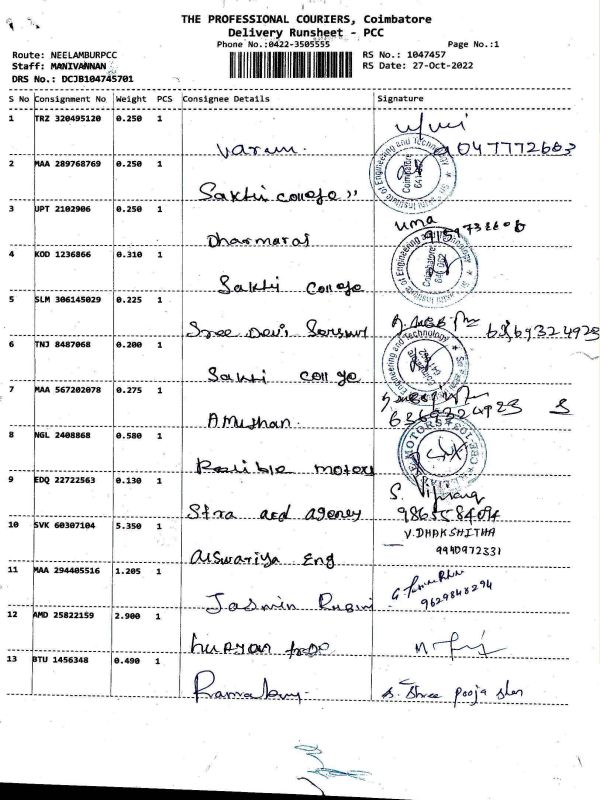 THE PROFESSIONAL COURIERS, Coimbatore
Delivery Runsheet - PCC
Phone No.:0422-3505555
Page No.:1
Route: NEELAMBURPCC
RS No.: 1047457
Staff: MANIVANNAN
RS Date: 27-Oct-2022
DRS No.: DCJB104745701
S No Consignment No Weight PCS Consignee Details Signature
1 TRZ 320495120 0.250 1
Varun. 9047772663
2 MAA 289768769 0.250 1
Sakthi college "
3 UPT 2102906 0.250 1 uma
Dharmaraj
4 KOD 1236866 0.310 1
Sakthi college
5 SLM 306145029 0.225 1
Sree Devi 6369324923
6 TNJ 8487068 0.200 1
Sakthi college
7 MAA 567202078 0.275 1
6369324923
8 NGL 2408868 0.580 1
motors
9 EDQ 22722563 0.130 1
and agency 9865584094
10 SVK 60307104 5.350 1 V. DHAKSHITHA
Aiswariya Eng 9940972331
11 MAA 294405516 1.205 1
Jasmin 9629848294
12 AMD 25822159 2.900 1
13 BTU 1456348 0.490 1
S. Shree pooja